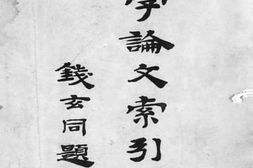 學論文索引
錢玄同題